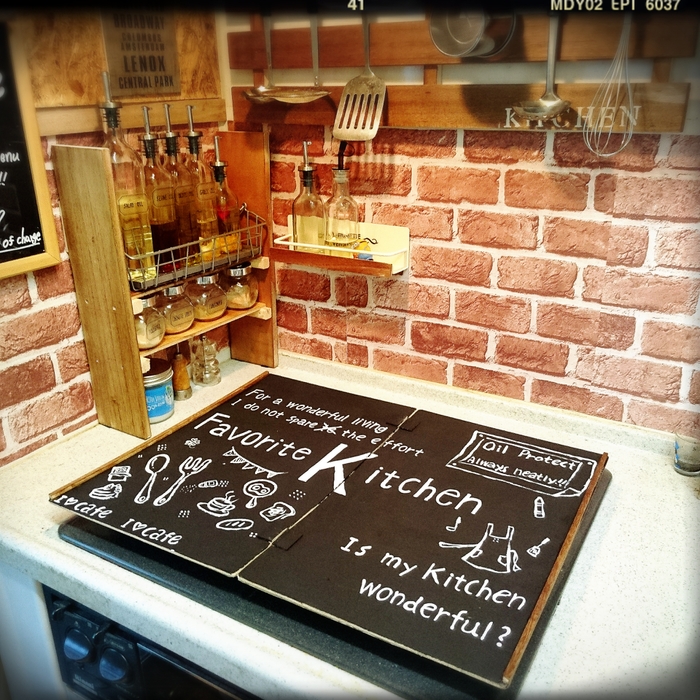 41
MDY02 EPI 6037
BROADWAY
LENOX
CENTRAL PARK
KITCHEN
enu
!!
of charge
For a wonderful living
I do not spare the effort
Favorite Kitchen
Oil Protect
always neatly!!
I♥cafe I♥cafe
Is my Kitchen
wonderful?